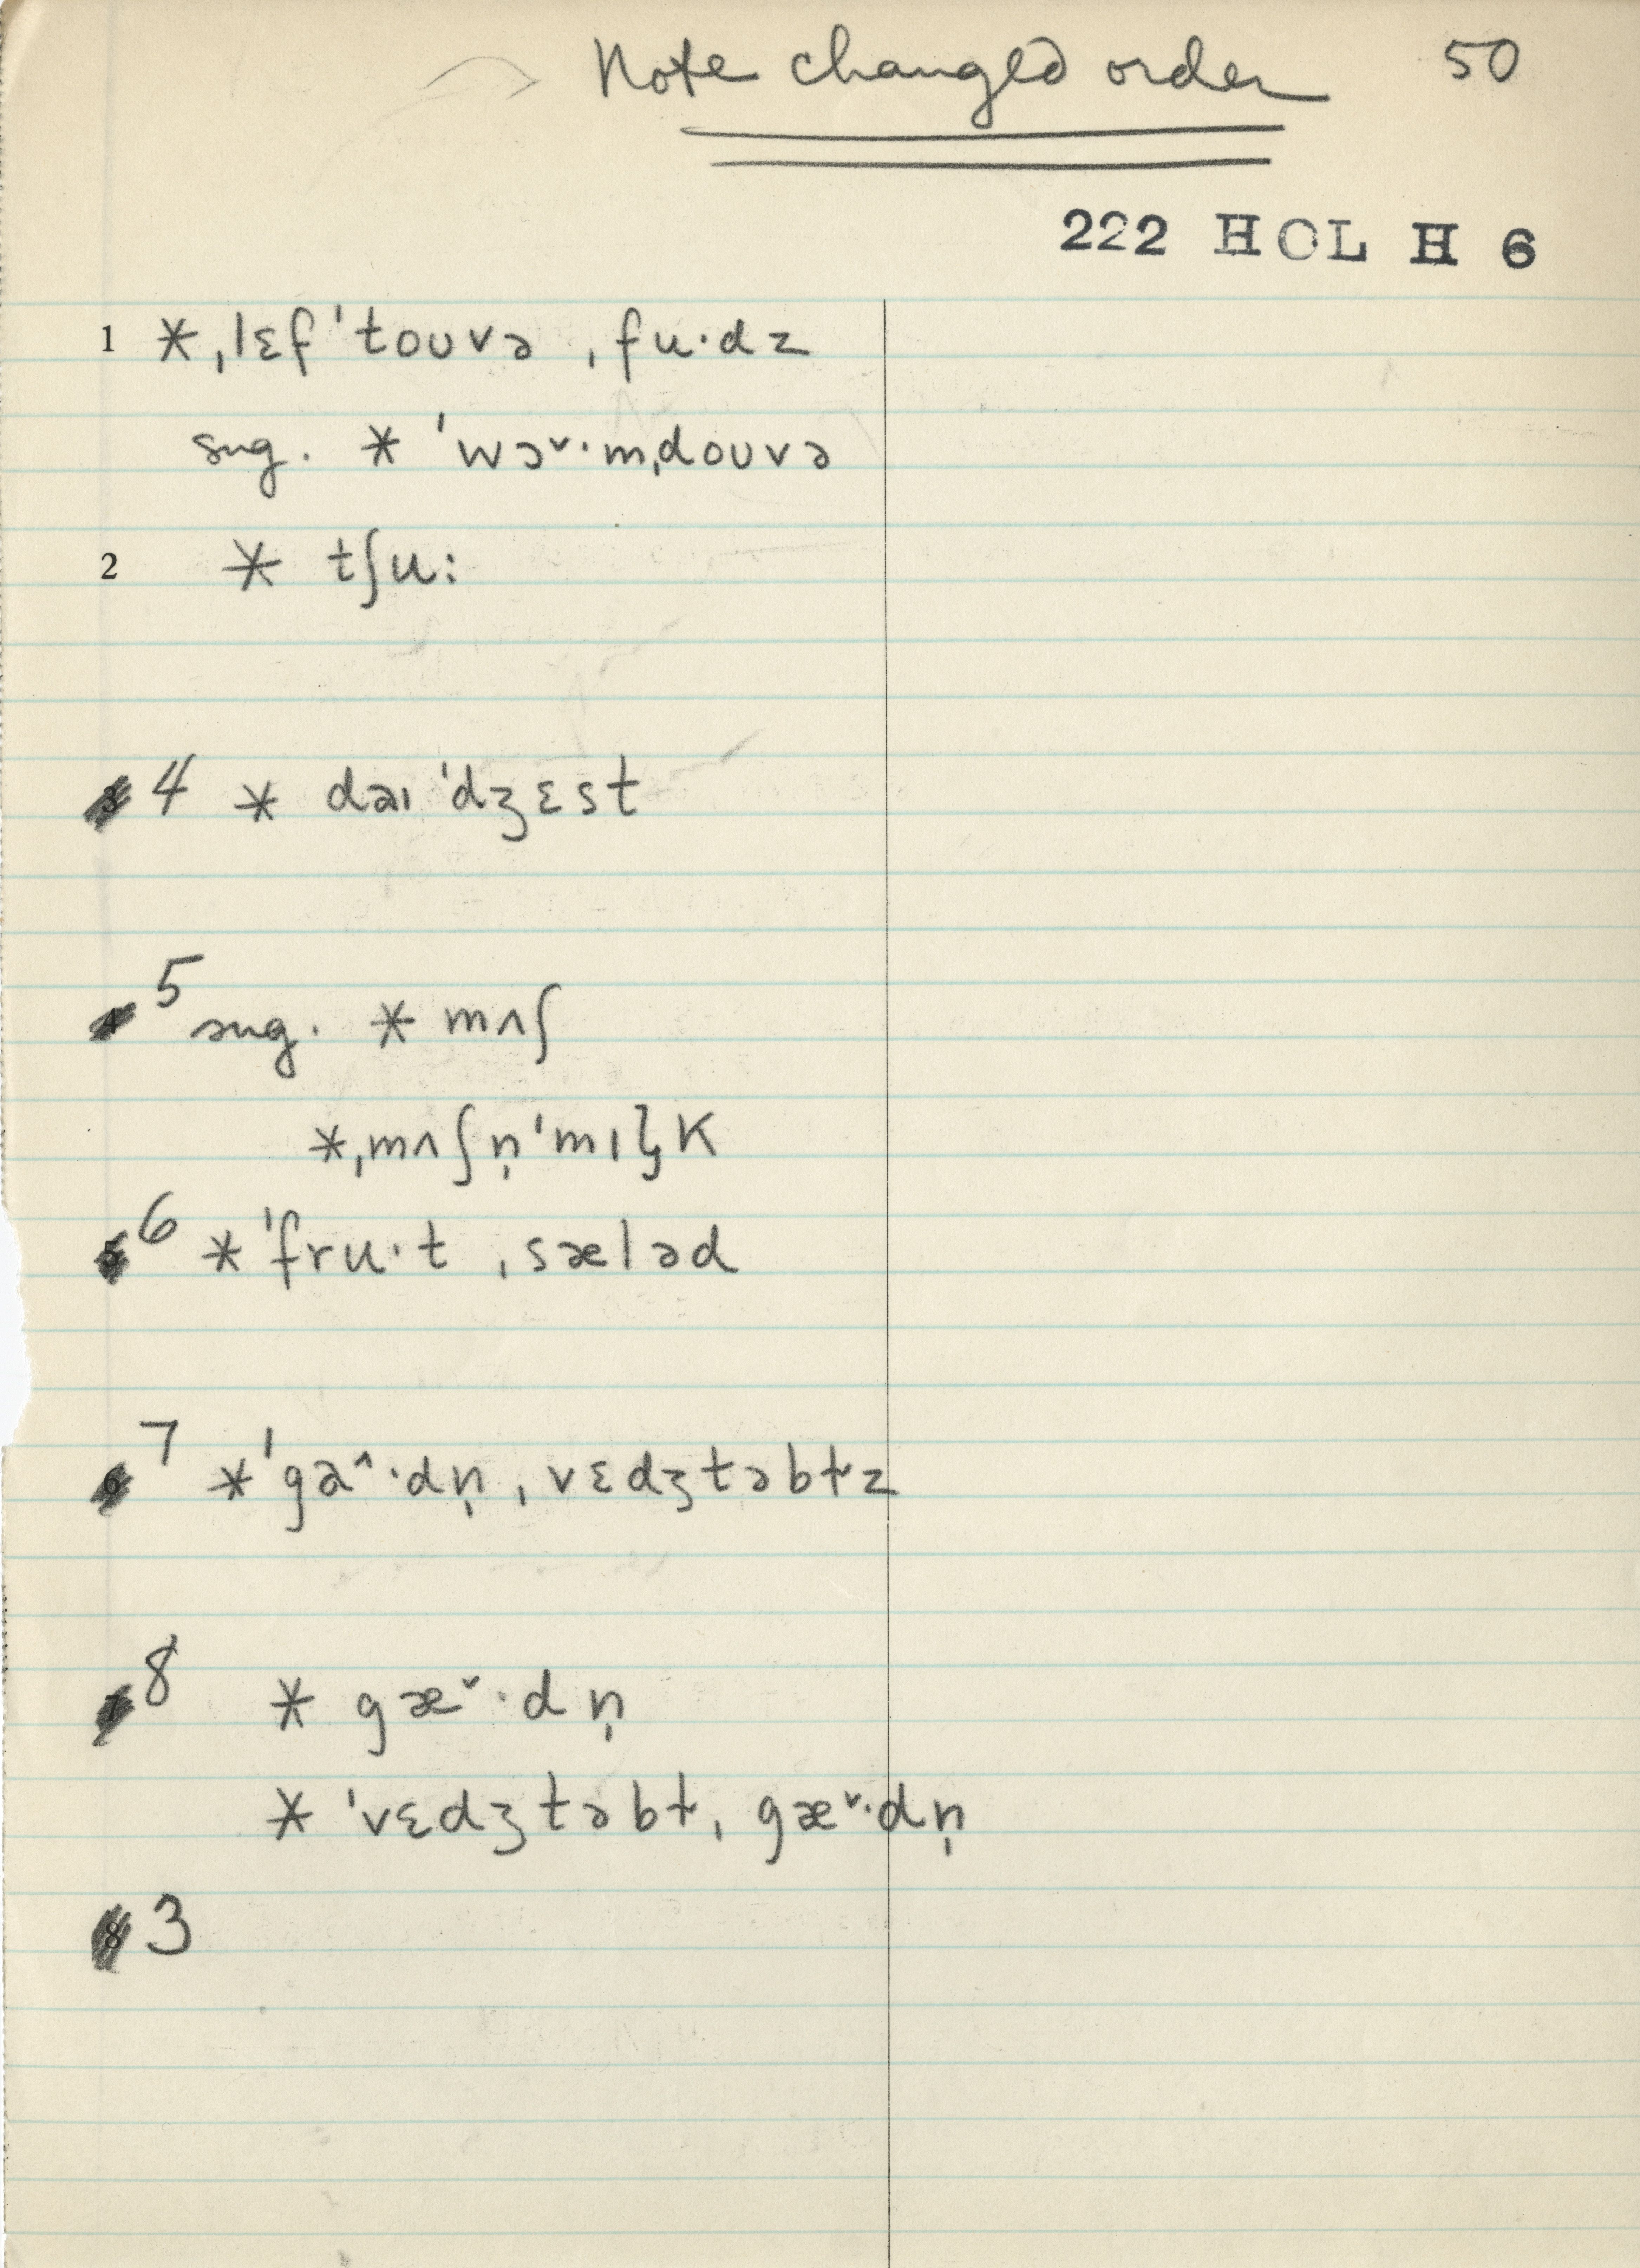 Note changed order 50
222 HOL H 6
1 *ˌlɛfˈtoʊvə ˌfu·dz
sug. * ˈwɔ˅·mˌdoʊvə
2 * tʃu:
4 * dəɪˈdʒɛst
5 sug. * mʌʃ
*ˌmʌʃn̩ˈmɪɫ̩k
6 *ˈfru·t ˌsæləd
7 *ˈga^·dn̩ ˌvɛdʒtəbɫz
8 * gæ˅·dn̩
* ˈvɛdʒtəbɫˌ gæ˅·dn̩
3